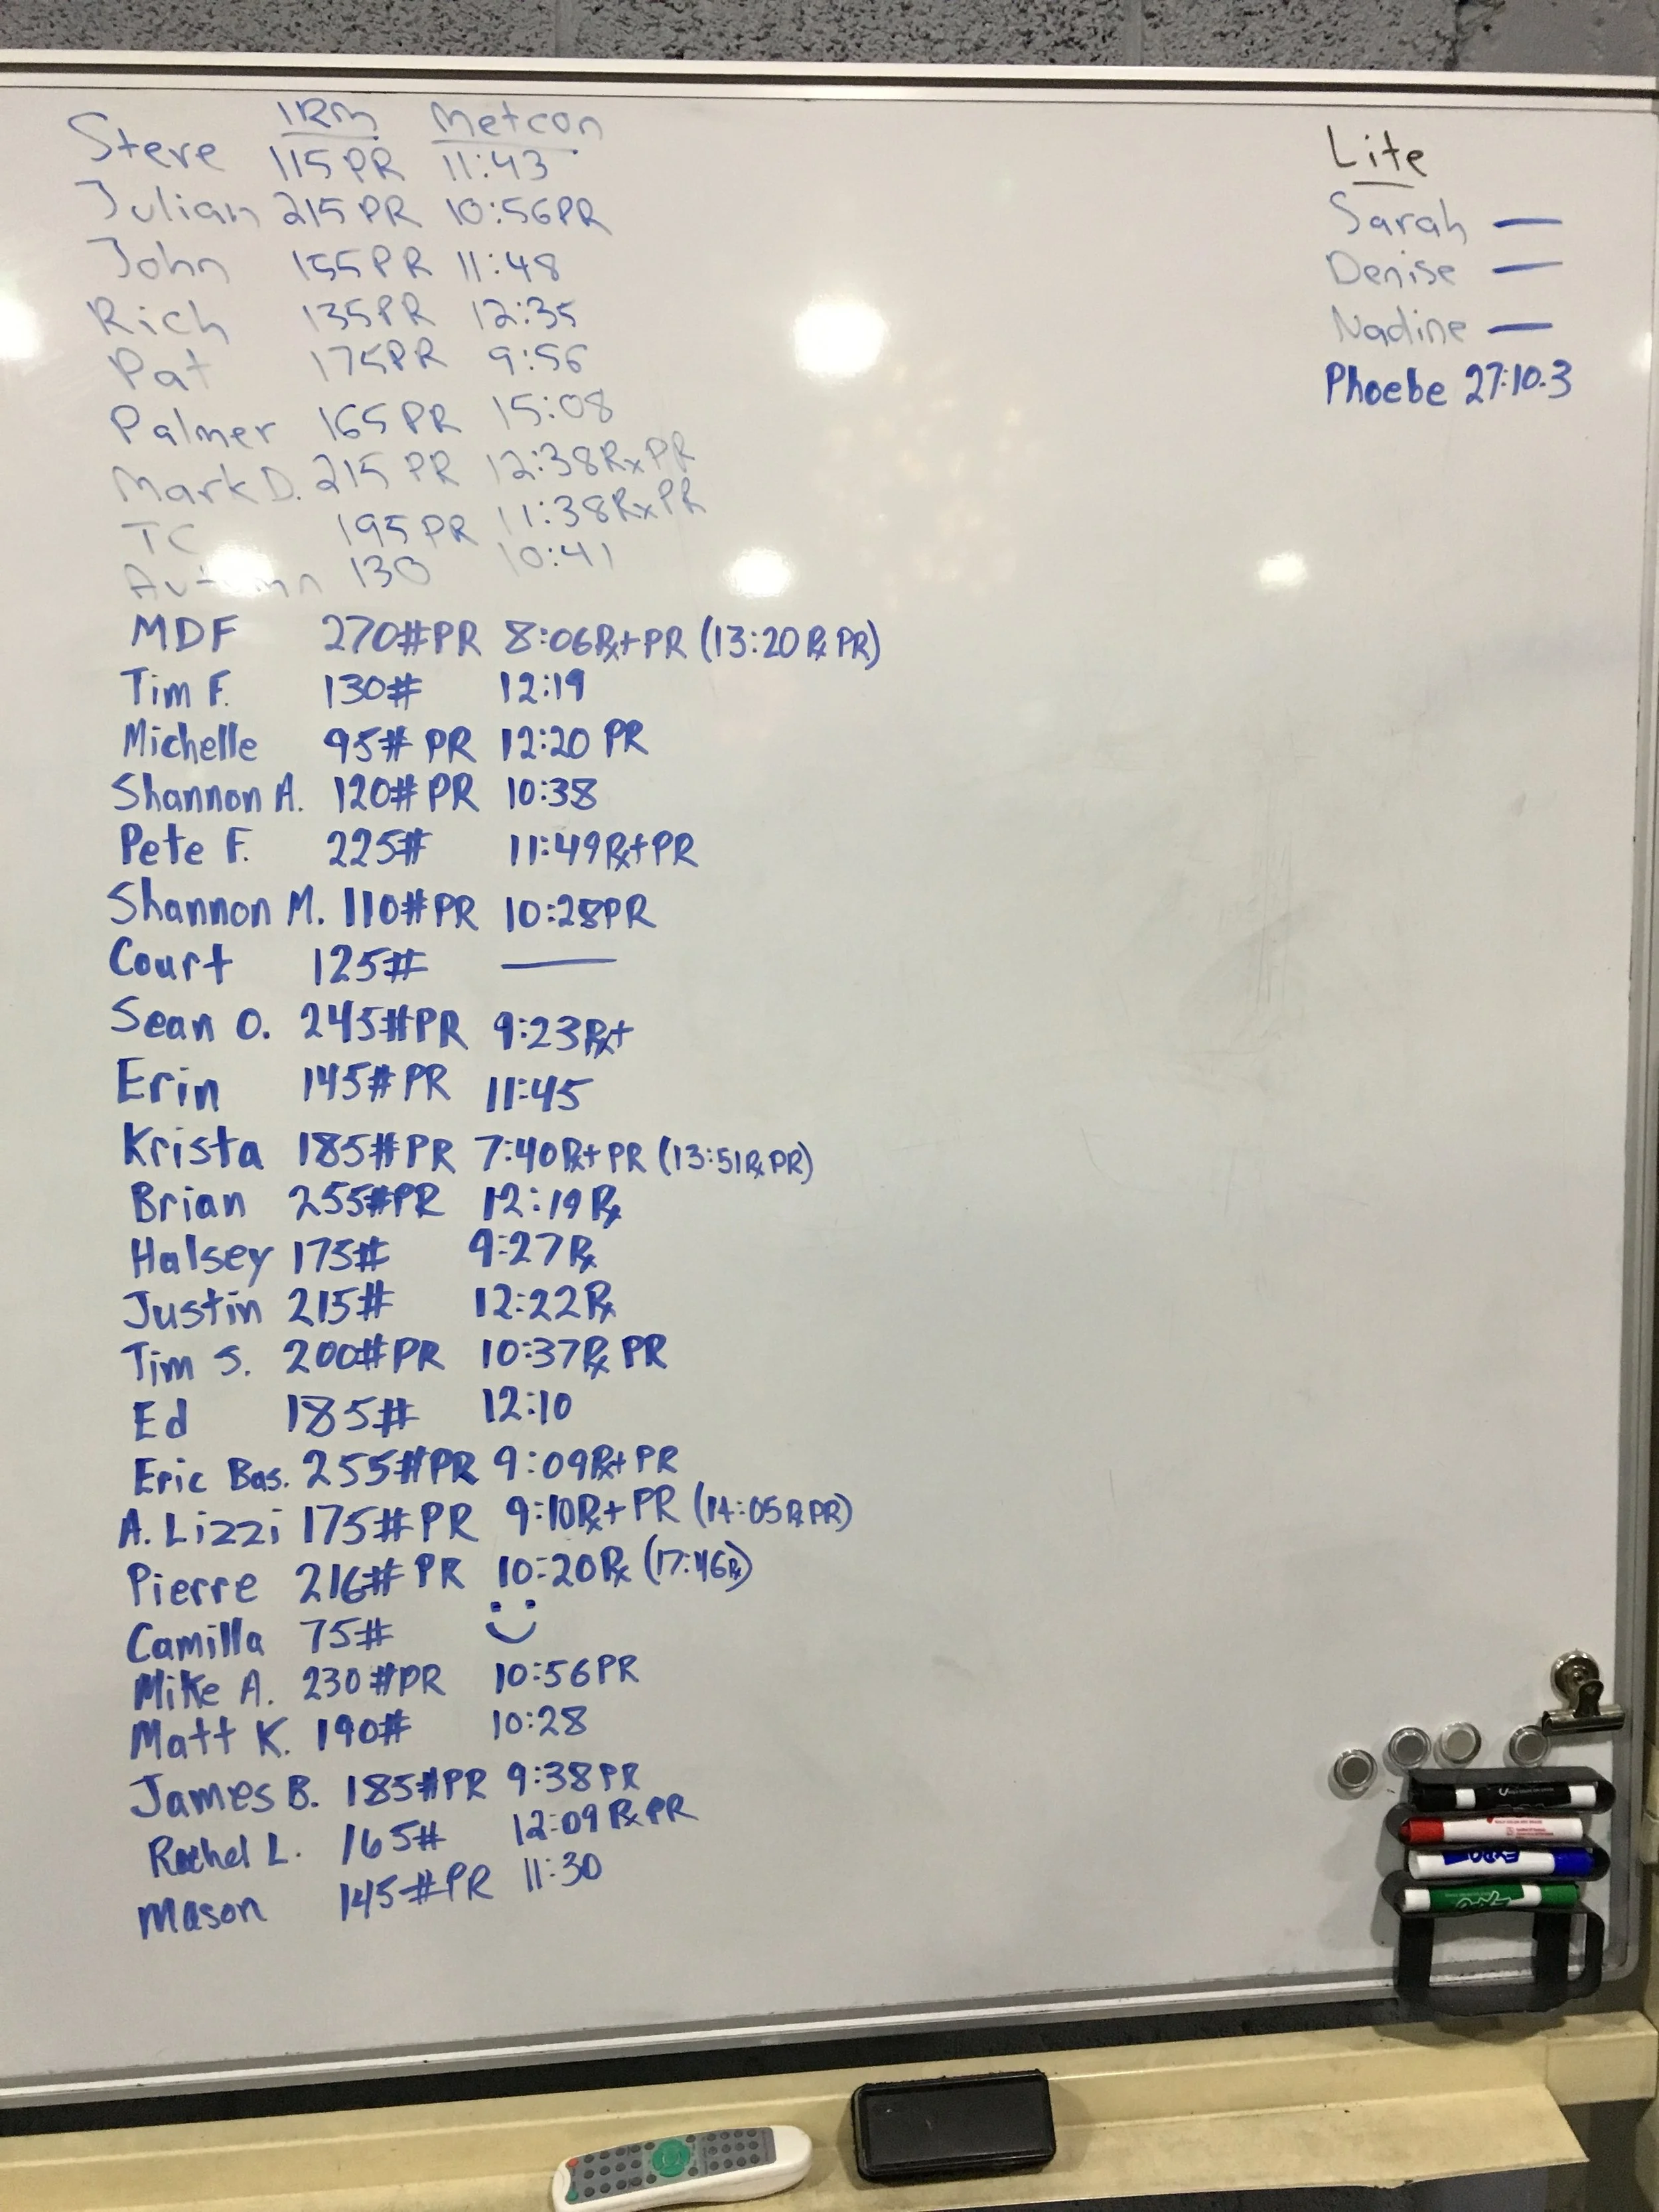 1RM Metcon
Steve 115PR 11:43
Julian 215PR 10:56PR
John 155PR 11:48
Rich 135PR 12:35
Pat 175PR 9:56
Palmer 165PR 15:08
Mark D. 215 PR 12:38RxPR
TC 195PR 11:38RxPR
Autumn 130 10:41
MDF 270#PR 8:06Rx+PR (13:20 Rx PR)
Tim F. 130# 12:19
Michelle 95# PR 12:20 PR
Shannon A. 120# PR 10:38
Pete F. 225# 11:49Rx+PR
Shannon M. 110#PR 10:28PR
Court 125# —
Sean O. 245#PR 9:23Rx+
Erin 145# PR 11:45
Krista 185#PR 7:40Rx+ PR (13:51Rx PR)
Brian 255#PR 12:19 Rx
Halsey 175# 9:27Rx
Justin 215# 12:22Rx
Tim S. 200#PR 10:37Rx PR
Ed 185# 12:10
Eric Bas. 255#PR 9:09Rx+ PR
A. Lizzi 175# PR 9:10Rx+ PR (14:05Rx PR)
Pierre 216# PR 10:20Rx (17:46Rx)
Camilla 75#
Mike A. 230#PR 10:56PR
Matt K. 190# 10:28
James B. 185#PR 9:38PR
Rachel L. 165# 12:09 RxPR
Mason 145#PR 11:30
Lite
Sarah —
Denise —
Nadine —
Phoebe 27:10.3
EXPO